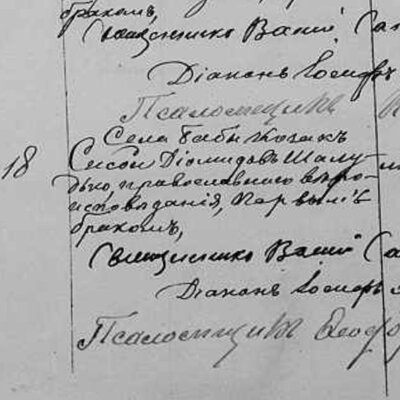 бракомъ,
Священникъ Василiй
Дiаконъ Iосифъ
Псаломщикъ
18 Села Бабы козакъ
Сисой Дiомидовъ Шалу-
дько, православнаго вѣро-
исповѣданiя, первымъ
бракомъ,
Священникъ Василiй
Дiаконъ Iосифъ
Псаломщикъ Ѳеодо